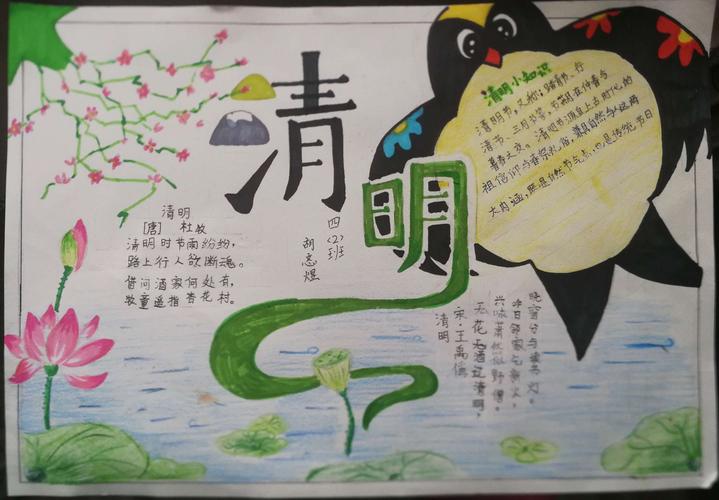 清明
清明
[唐] 杜牧
清明时节雨纷纷,
路上行人欲断魂。
借问酒家何处有,
牧童遥指杏花村。
四(2)班
清明小知识
清明节,又称:踏青节、行
清节、三月节等,节期在仲春与
暮春之交。清明节源自上古时代的
祖信仰与春祭礼俗,兼具自然与人文两
大内涵,既是自然节气点,也是传统节日
清明
宋·王禹偁
无花无酒过清明,
兴味萧然似野僧。
昨日邻家乞新火,
晓窗分与读书灯。